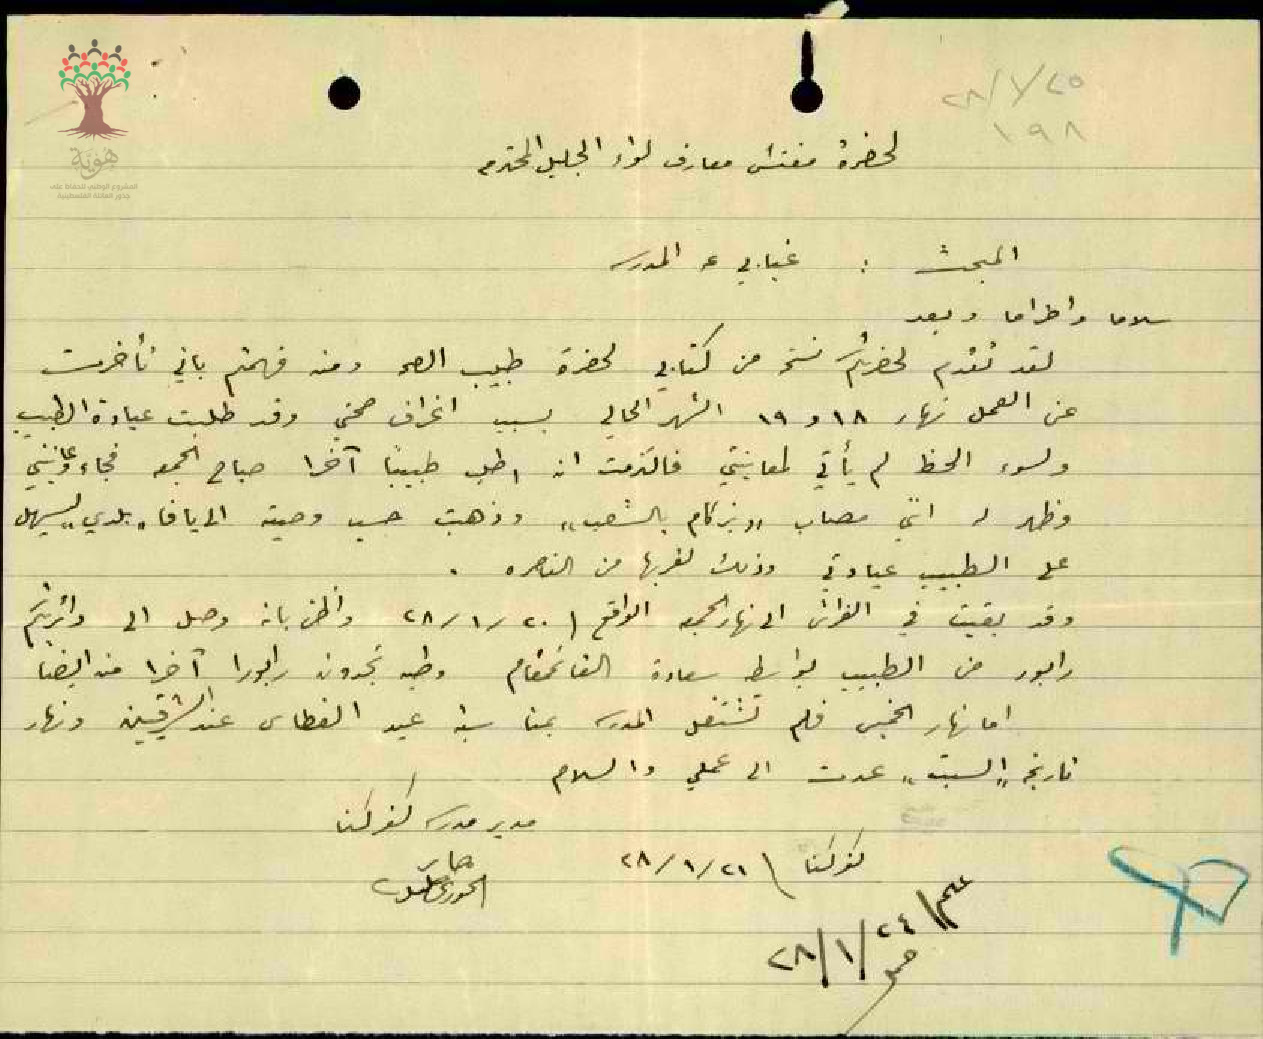 ٢٨/١/٢٥
١٩٨
هوية
المشروع الوطني للحفاظ على
جذور العائلة الفلسطينية
لحضرة مفتش معارف لواء الجليل المحترم
المبحث : غيابي عن المدرسه
سلاما واحتراما وبعد
لقد تقدم لحضرتكم نسخه من كتابي لحضرة طبيب الصحه ومنه فهمتم باني تأخرت
عن العمل نهار ١٨ و ١٩ الشهر الحالي بسبب انحراف صحتي وقد طلبت عيادة الطبيب
ولسوء الحظ لم يأتي لمعاينتي فالتزمت ان اطلب طبيبا آخرا صباح الجمعه فجاء وعاينني
وظهر له انني مصاب "بزكام بالشعب" وذهبت حسب وصيته الى يافا "بلدي" ليسهل
على الطبيب عيادتي وذلك لقربها من الناصره .
وقد بقيت في الفراش الى نهار الجمعه الواقع ٢٨/١/٢٠ واظن بانه وصل الى دائرتكم
رابور من الطبيب بواسطة سعادة القائمقام وطيه تجدون رابورا آخرا منه ايضا
اما نهار الخميس فلم تشتغل المدرسه بمناسبة عيد الغطاس عند الشرقيين ونهار
تاريخه "السبت" عدت الى عملي والسلام
مدير مدرسه كفركنا
الخوري
كفركنا ٢٨/١/٢١
٢٨/١/٢٤